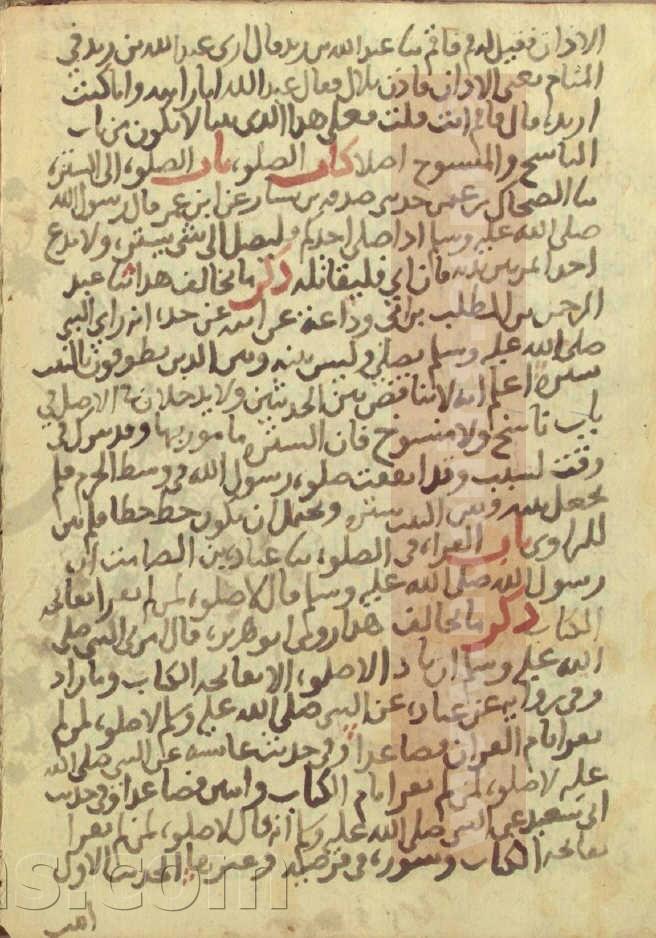 الاذان فقيل له قم فاقم ثنا عبد الله بن زيد قال ارى عبد الله بن زيد في
المنام يعني الاذان فاذن بلال فقال عبد الله انا رايته وانا كنت
اريده قال فاقم انت قلت فعلى هذا الذي بعد لا يكون من باب
الناسخ والمنسوخ اصلا كتاب الصلوه باب الصلوه الى الستره
ثنا الضحاك بن عثمن حدثني صدقه بن يسار عن ابن عمر قال رسول الله
صلى الله عليه وسلم اذا صلى احدكم فليصل الى شي يستره ولا يدع
احدا يمر بين يديه فان ابى فليقاتله ذكر ما يخالف هذا ثنا عبد
الرحمن بن المطلب بن ابي وداعة عن ابيه عن جده انه راى النبي
صلى الله عليه وسلم يصلي وليس بينه وبين الذين يطوفون بالبيت
ستره اعلم انه لا تناقض بين الحديثين ولا يدخلان في الاصل في
باب ناسخ ولا منسوخ فان الستره مامور بها وقد تترك في
وقت لسبب وقد اتفقت صلوه رسول الله في وسط الحرم فلم
يجعل بينه وبين البيت ستره ويحتمل ان يكون خط خطا فلم يبن
للراوي باب القراه في الصلوه ثنا عباده بن الصامت ان
رسول الله صلى الله عليه وسلم قال لا صلوه لمن لم يقرا بفاتحه
الكتاب ذكر ما يخالف هذا روى ابو هريره قال امرني النبي صلى
الله عليه وسلم ان انادي الا لا صلوه الا بفاتحه الكتاب وما زاد
وفي روايه عن عباده عن النبي صلى الله عليه وسلم لا صلوه لمن لم
يقرا بام القران فصاعدا وفي حديث عائشه عن النبي صلى الله
عليه لا صلوه لمن لم يقرا بام الكتاب واثنين فصاعدا وفي حديث
ابي سعيد عن النبي صلى الله عليه وسلم انه قال لا صلوه لمن لم يقرا
بفاتحه الكتاب وسوره في فريضه وغيرها الحديث الاول
ns.com